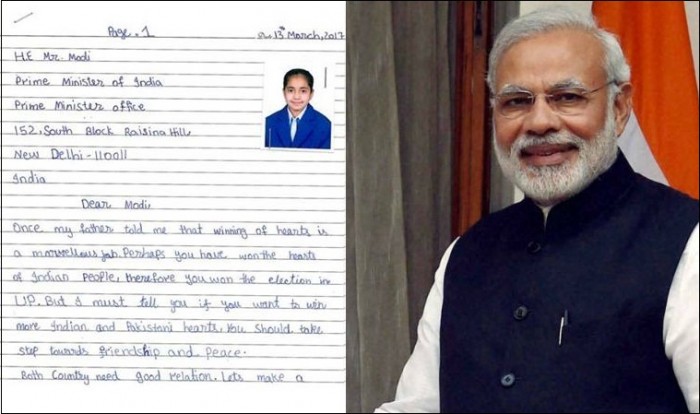 Page. 1
13th March, 2017
HE Mr. Modi
Prime Minister of India
Prime Minister office
152, South Block Raisina Hill
New Delhi-110011
India
Dear Modi,
Once my father told me that winning of hearts is
a marvellous job. Perhaps you have won the hearts
of Indian People, therefore you won the election in
UP. But I must tell you if you want to win
more Indian and Pakistani hearts, you should take
step towards friendship and Peace.
Both Country need good relation. Lets make a